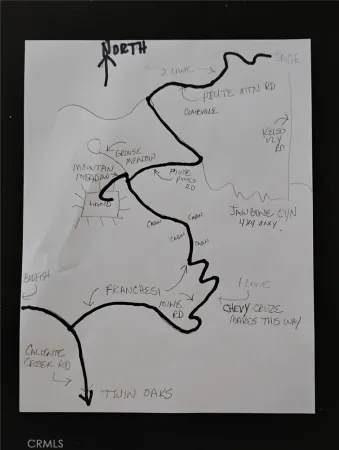 NORTH
SAGE
2 LANE
PIUTE MTN RD
CLARAVILLE
KELSO
VLY
RD
GROUSE
MEADOW
MOUNTAIN
MEADOW
PIUTE
PINES
RD
LAND
JAWBONE CYN
4X4 ONLY.
CABIN
CABIN
CABIN
CABIN
1-LANE
BIGFISH
FRANCHESI
MINE
RD
CHEVY CRUZE
MAKES THIS WAY
CALIENTE
CREEK RD
TWIN OAKS
CRMLS